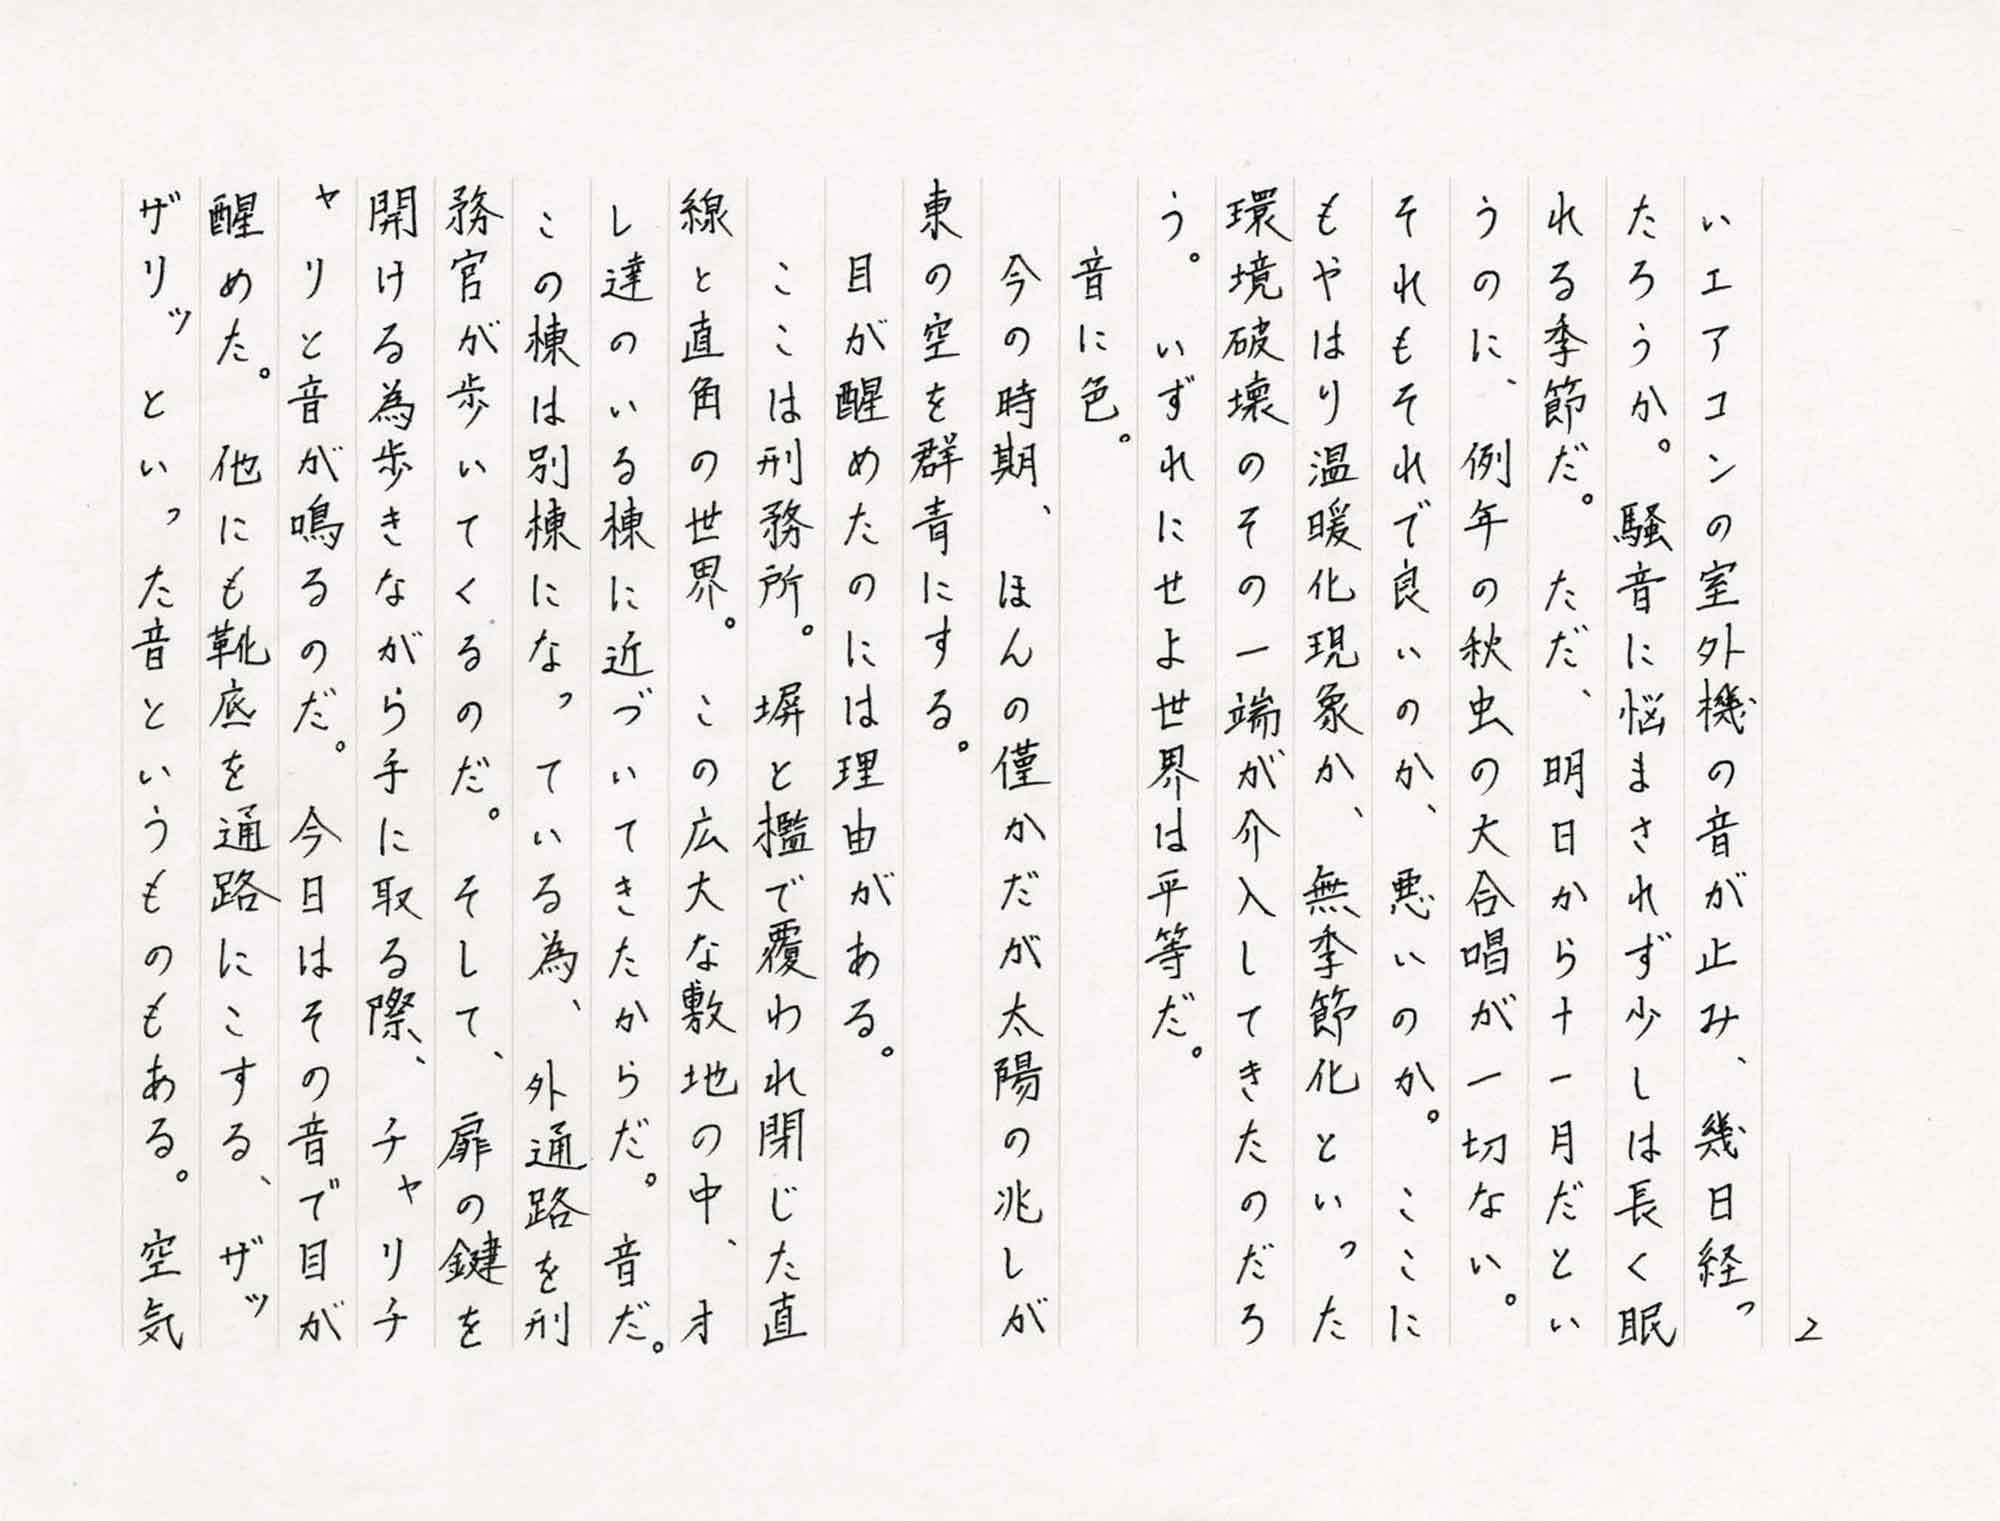 2
いエアコンの室外機の音が止み、幾日経っ
たろうか。騒音に悩まされず少しは長く眠
れる季節だ。ただ、明日から十一月だとい
うのに、例年の秋虫の大合唱が一切ない。
それもそれで良いのか、悪いのか。ここに
もやはり温暖化現象か、無季節化といった
環境破壊のその一端が介入してきたのだろ
う。いずれにせよ世界は平等だ。
音に色。
今の時期、ほんの僅かだが太陽の兆しが
東の空を群青にする。
目が醒めたのには理由がある。
ここは刑務所。塀と檻で覆われ閉じた直
線と直角の世界。この広大な敷地の中、オ
レ達のいる棟に近づいてきたからだ。音だ。
この棟は別棟になっている為、外通路を刑
務官が歩いてくるのだ。そして、扉の鍵を
開ける為歩きながら手に取る際、チャリチ
ャリと音が鳴るのだ。今日はその音で目が
醒めた。他にも靴底を通路にこする、ザッ
ザリッといった音というものもある。空気